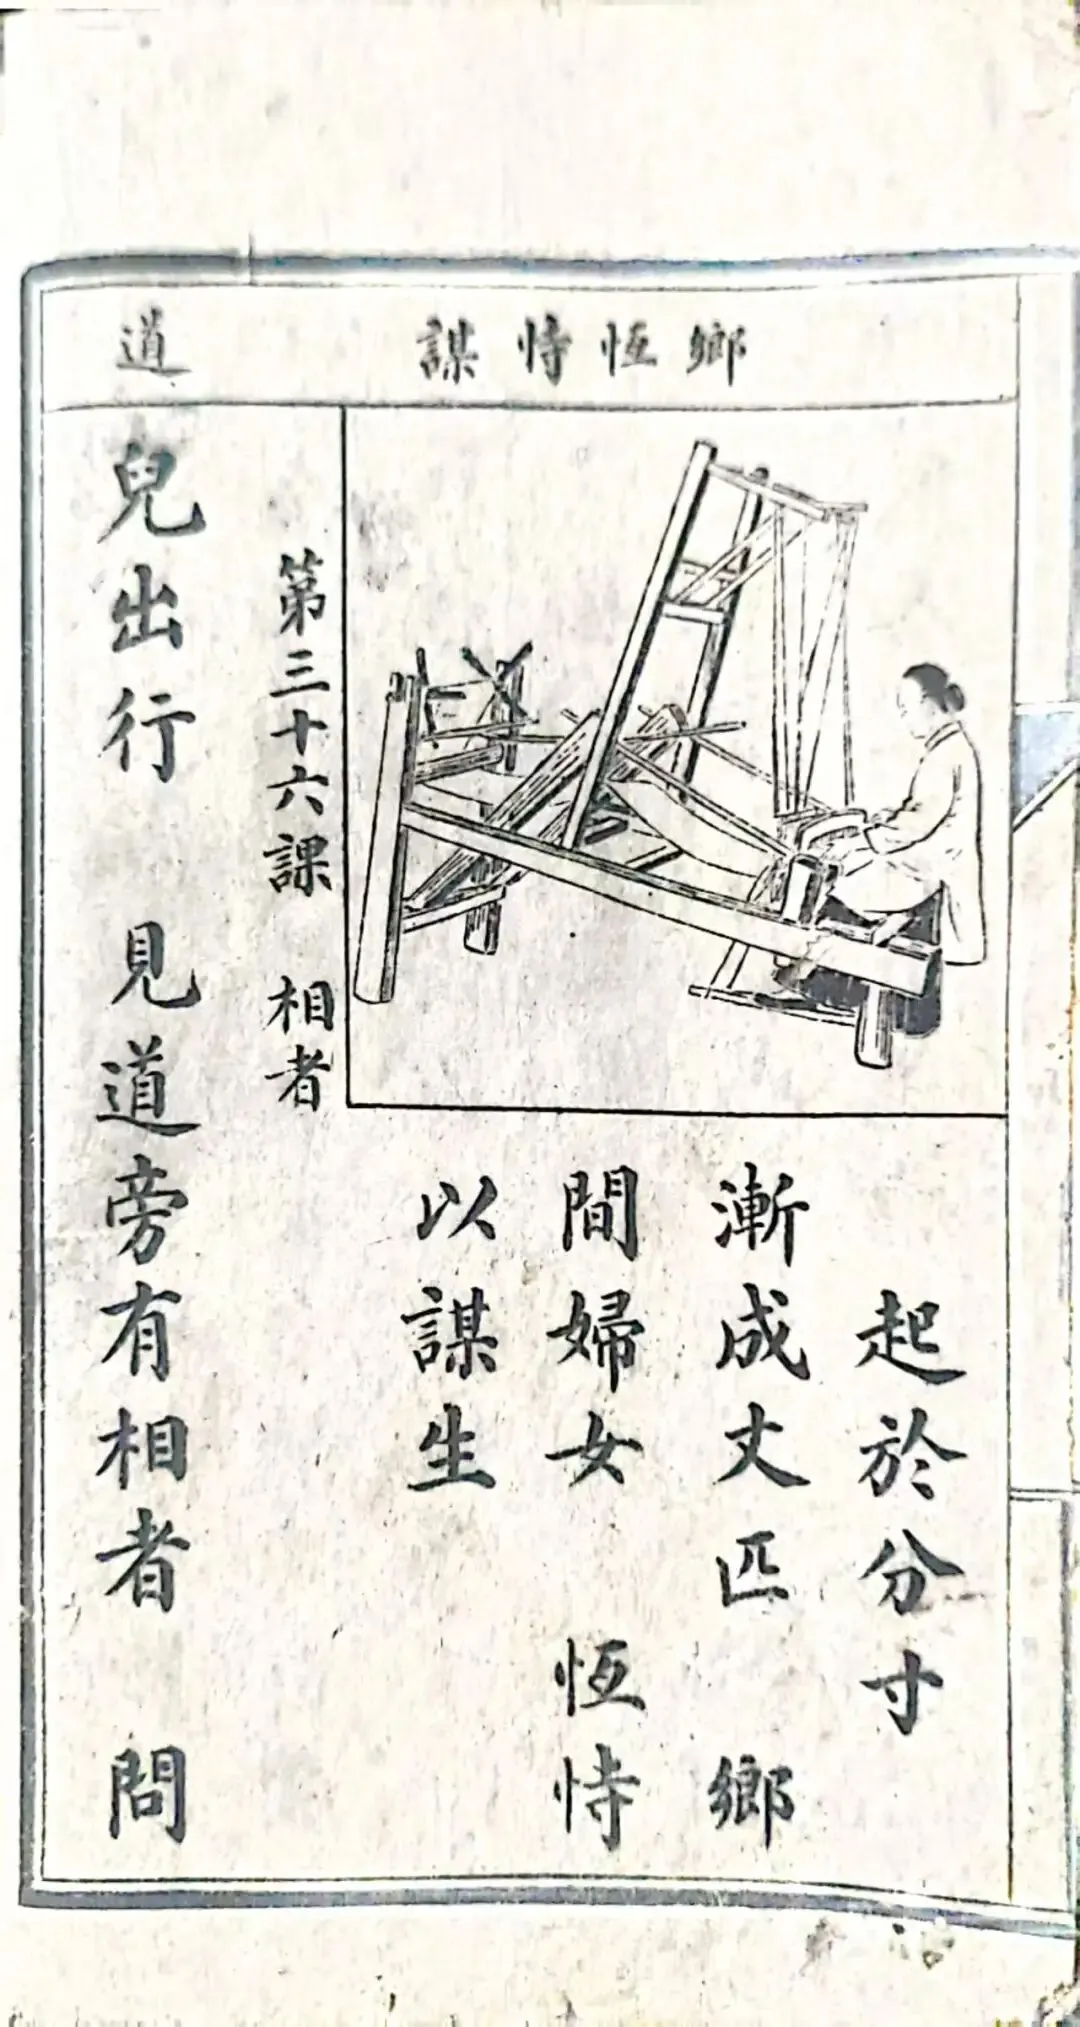 鄉恆恃謀
起於分寸
漸成丈匹　鄉
間婦女　恆恃
以謀生
道
第三十六課　相者
兒出行　見道旁有相者　問